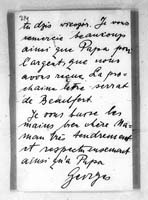 tu dois voyager. Je vous
remercie beaucoup
ainsi que Papa pour
l'argent que nous
avons reçu. La pro-
chaine lettre serrat
de Beaufort.
Je vous baise les
mains bien chère Ma-
man très tendrement
et respectueusement
ainsi qu'à Papa
Georges